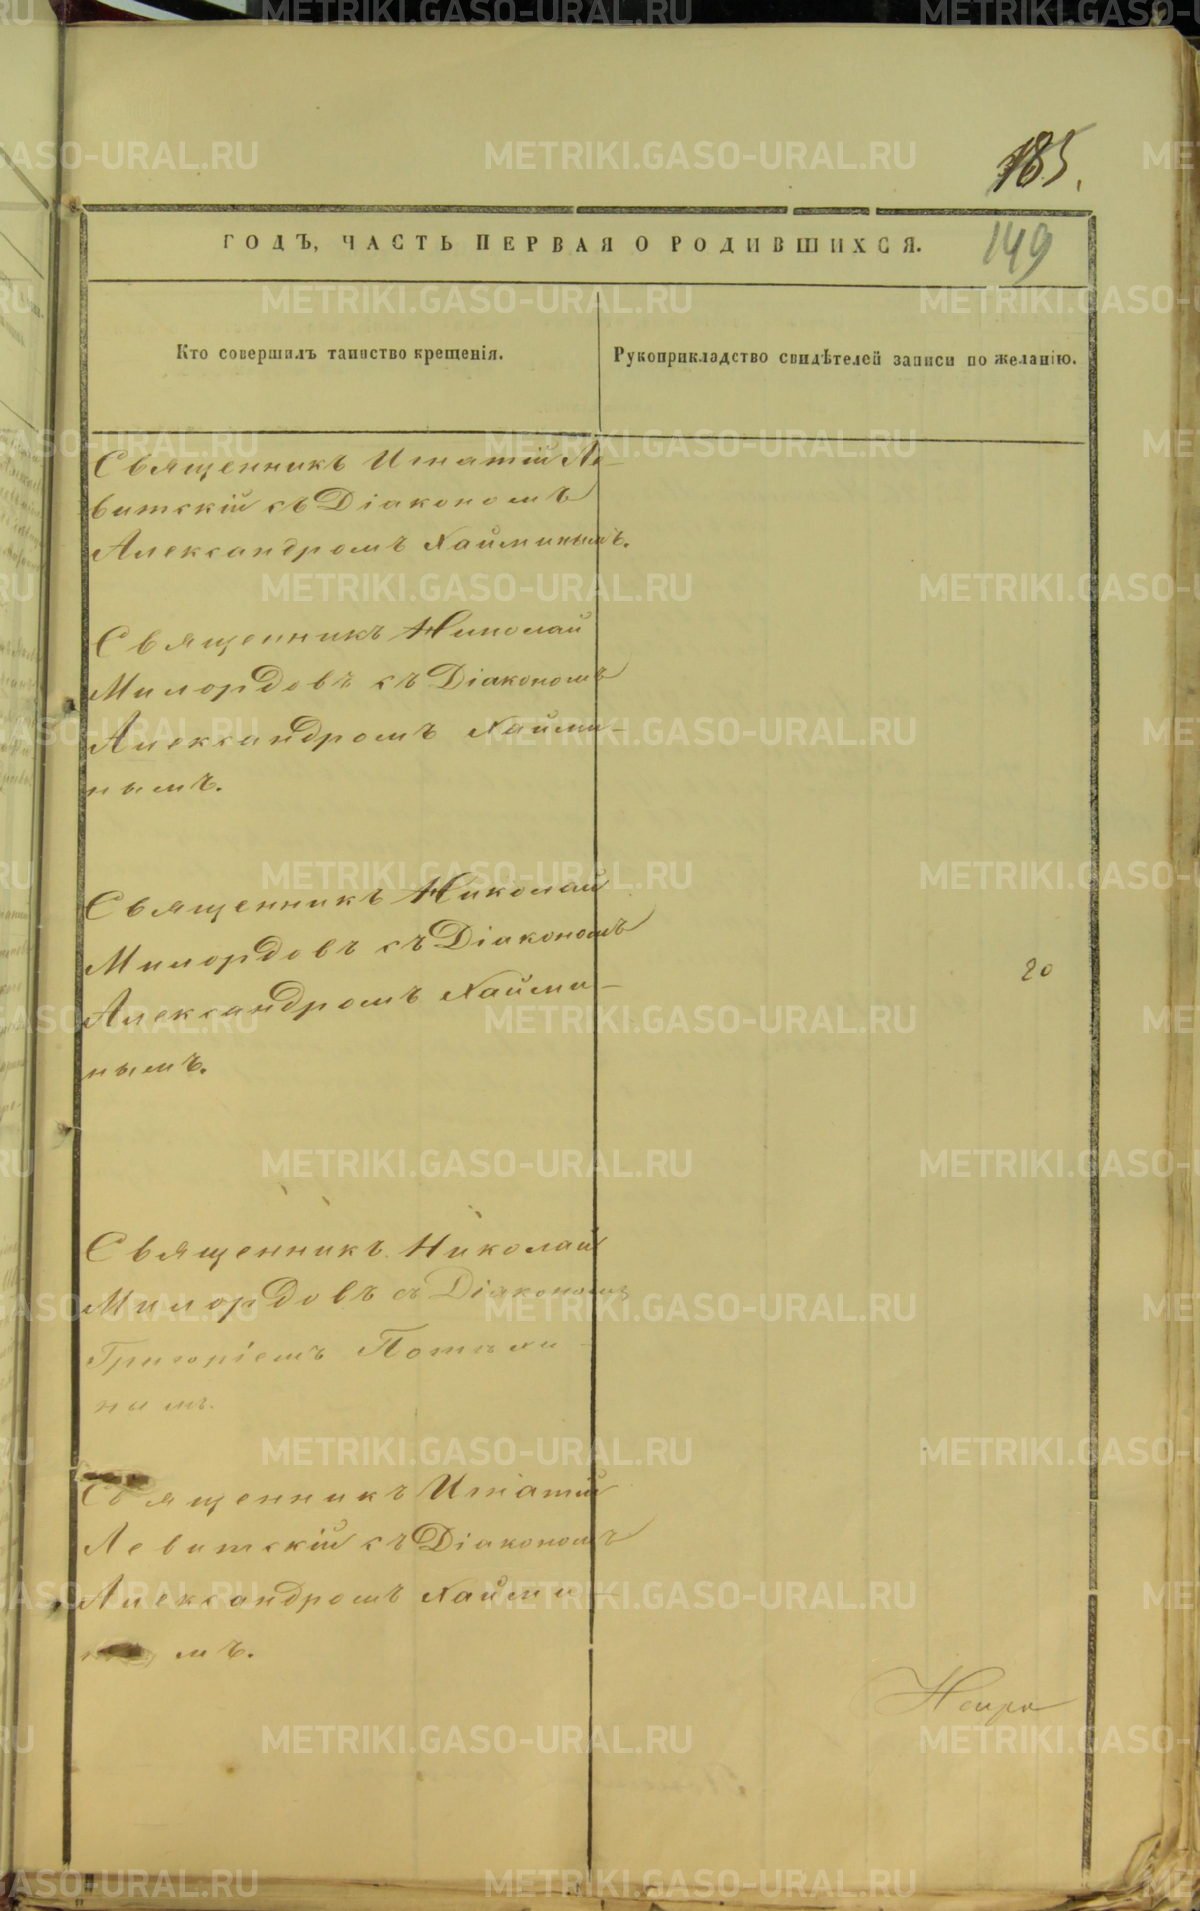 185.
149
ГОДЪ, ЧАСТЬ ПЕРВАЯ О РОДИВШИХСЯ.
Кто совершилъ таинство крещенія.
Рукоприкладство свидѣтелей записи по желанію.
Священникъ Игнатій Ле-
витскій съ Діакономъ
Александромъ Хайминымъ.
Священникъ Николай
Милордовъ съ Діакономъ
Александромъ Хайми-
нымъ.
Священникъ Николай
Милордовъ съ Діакономъ
Александромъ Хайми-
нымъ.
20
Священникъ Николай
Милордовъ съ Діакономъ
Григоріемъ
нымъ.
Священникъ Игнатій
Левитскій съ Діакономъ
Александромъ Хайми
нымъ.
METRIKI.GASO-URAL.RU